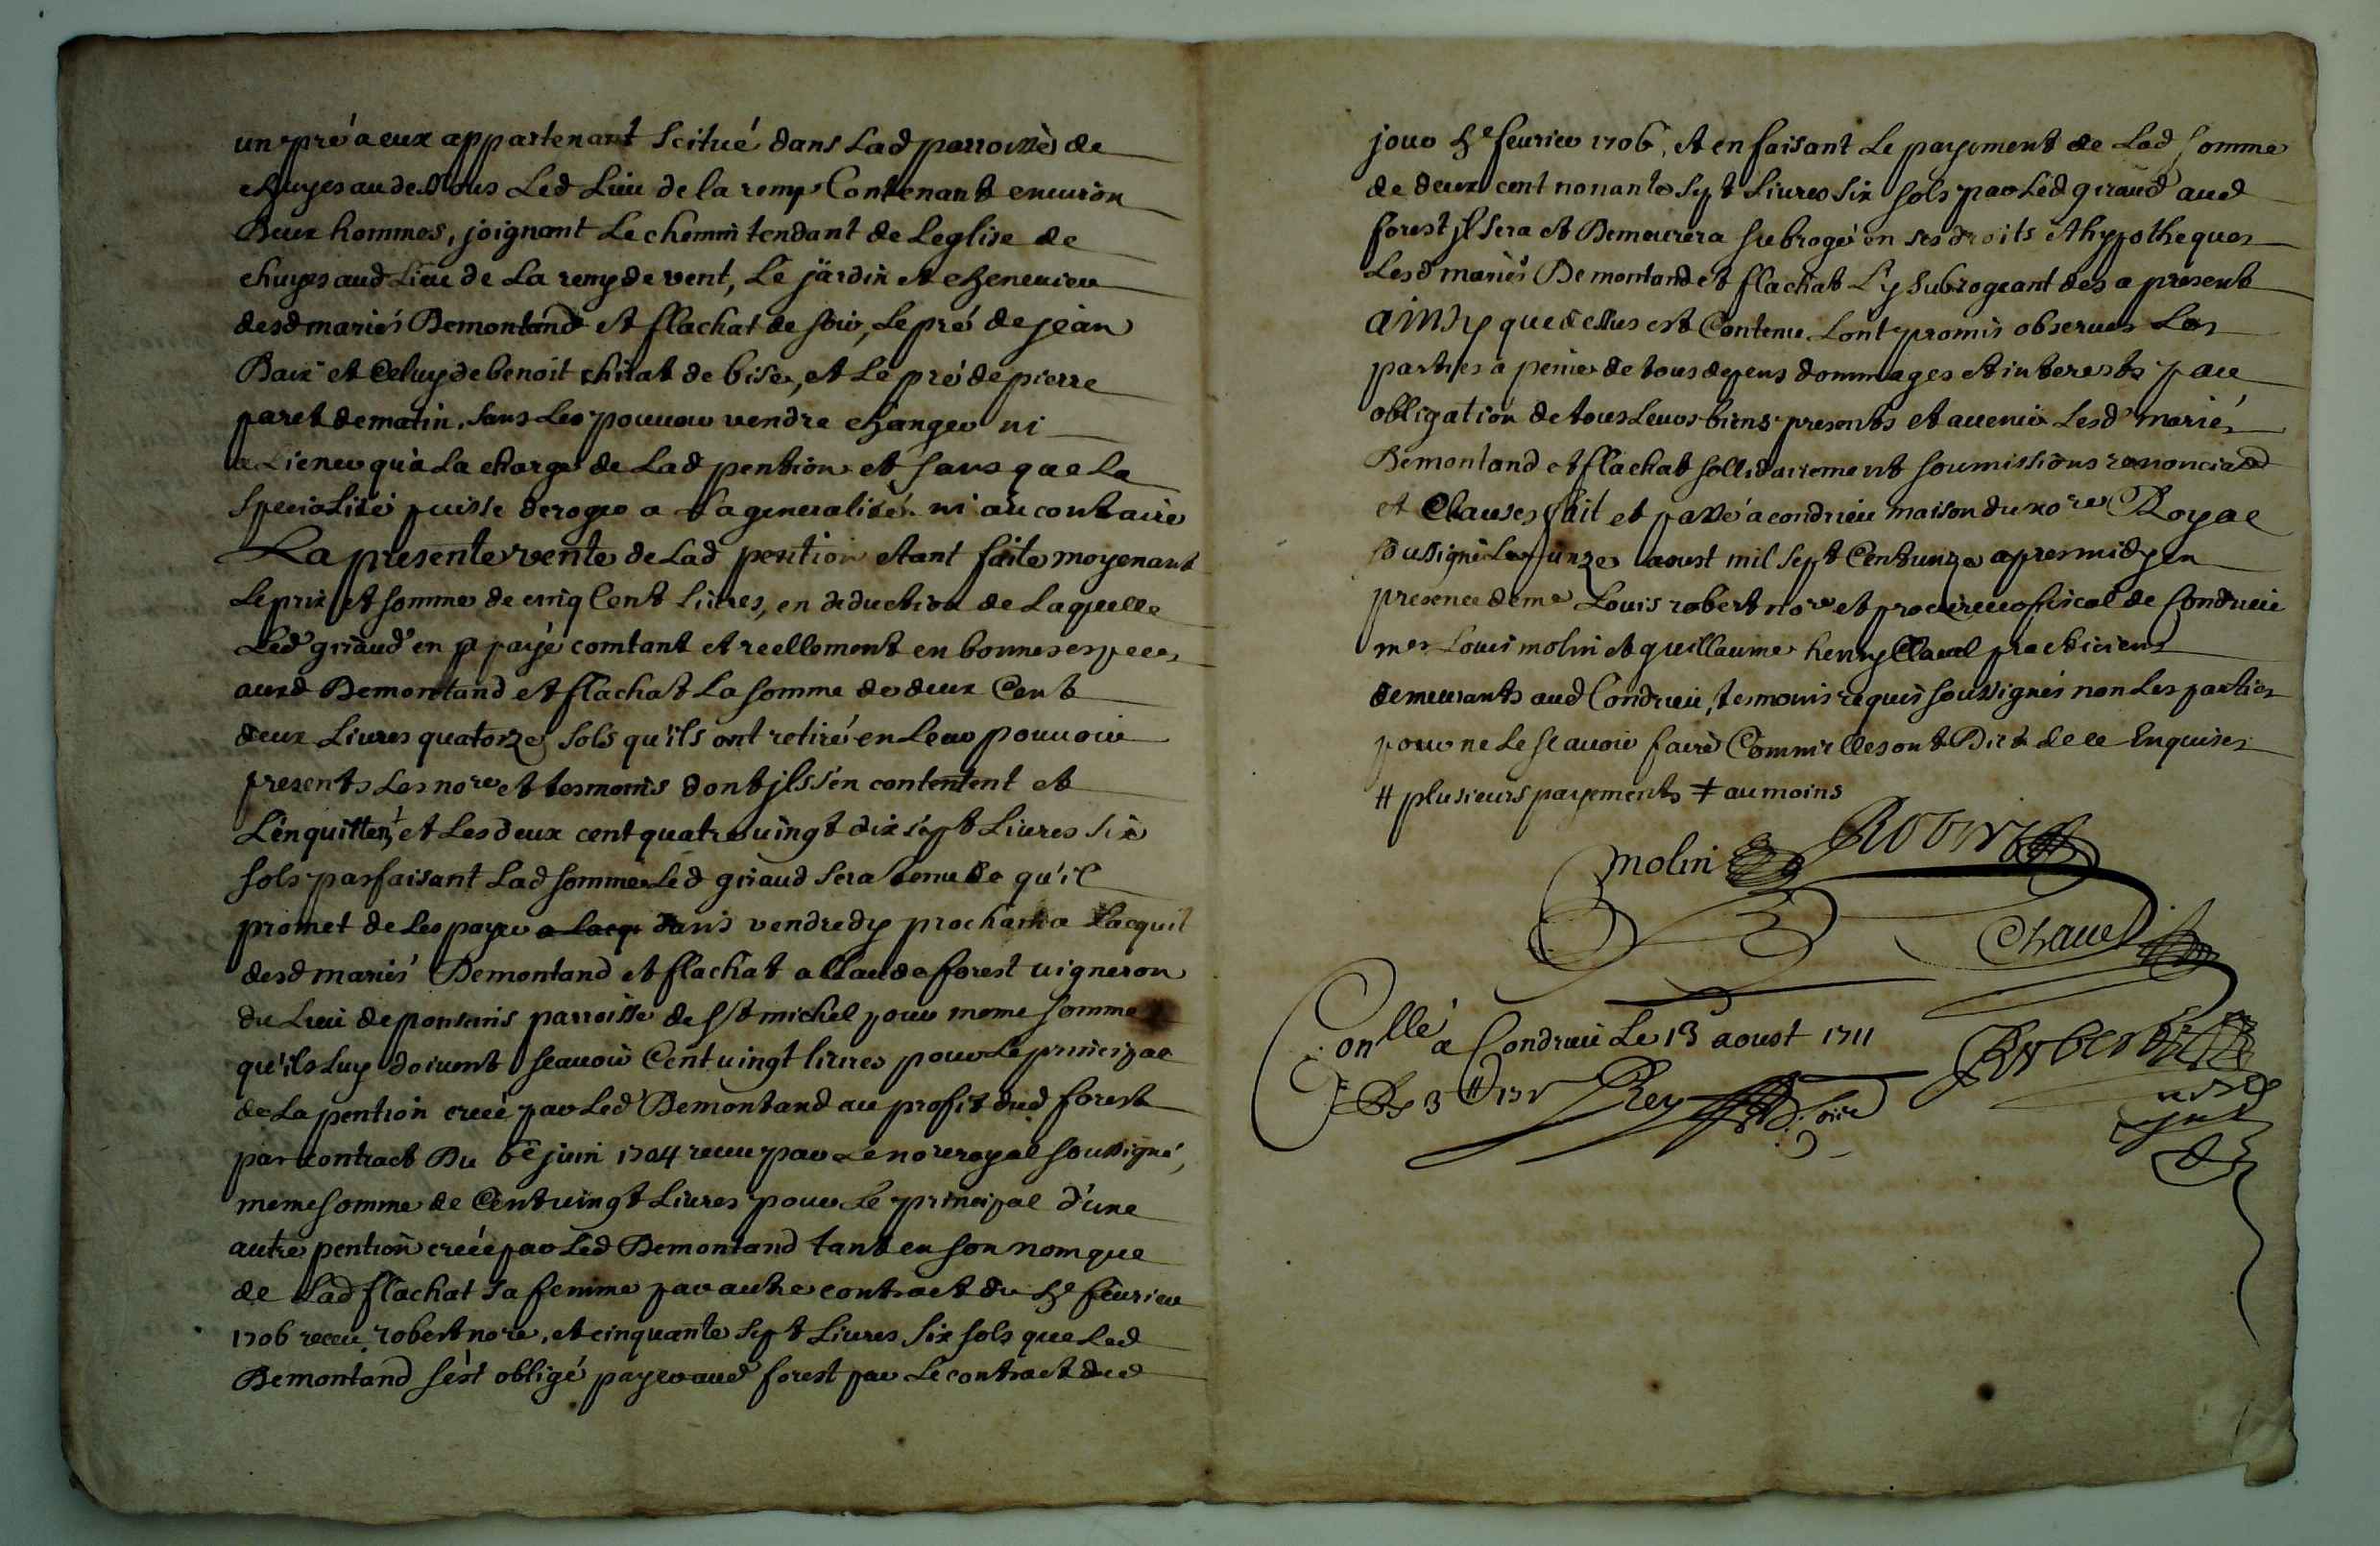 un pré a eux appartenant scitué dans lad parroisse de
chuyes au dessous led lieu de la remy Contenant enuiron
Deux hommes, joignant le chemin tendant de leglise de
chuyes aud lieu de la remy de vent, le jardin et cheneuier
desd mariés Demontand et flachat de soir, le pré de jean
et celuy de benoit chirat de bise, et le pré de pierre
paret de matin, sans les pouuoir vendre changer ni
aliener qu'à la charge de lad pention et sans que la
specialité puisse deroger a la generalité ni au contraire
La presente vente de lad pention etant faite moyenant
le prix et somme de cinq Cent liures, en deduction de laquelle
led giraud en # payé comtant et reellement en bonnes especes
auxd Demontand et flachat la somme de deux Cent
deux liures quatorze sols qu'ils ont retiré en leur pouuoir
presents les nore et tesmoins dont jls s'en contentent et
l'enquittent, et les deux cent quatre uingt dix sept liures six
sols parfaisant lad somme led giraud sera tenu de qu'il
promet de les payer a lacq dans vendredy prochain a lacquit
desd mariés Demontand et flachat a Claude forest uigneron
du lieu de ponsins parroisse de St michel pour meme somme
qu'ils luy doiuent scauoir Cent uingt liures pour le principal
de la pention creée par led Demontand au profit dud forest
par contract Du 6e juin 1704 receu par le nore royal soussigné,
meme somme de Cent uingt liures pour le principal d'une
autre pention creée par led Demontand tant en son nom que
de lad flachat sa femme par autre contract du feurier
1706 receu robert nore, et cinquante sept liures six sols que led
Demontand s'est obligé payer aud forest par le contract dud
jour feurier 1706, et en faisant le payement de lad somme
de deux cent nonante sept liures six sols par led giraud aud
forest jl sera et Demeurera subrogé en ses droits et hypotheques
lesd mariés Demontand et flachat l'y subrogeant des a present
ainsy que dessus est Contenu l'ont promis obseruer les
parties a peine de tous depens dommages et interests par
obligation de tous leurs biens presents et auenir lesd mariés
Demontand et flachat sollidairement soumissions renonciaons
et Clauses fait et passé a condrieu maison du nore Royal
sousigné le unze aoust mil sept Cent unze apres midy en
presence de me Louis robert nore et procureur fiscal de Condrieu
mes Louis molin et guillaume henry practiciens
demeurants aud Condrieu, tesmoins requis soussignés non les parties
pour ne le scauoir faire Comm'elles ont Dit de ce Enquises
# plusieurs payements ≠ au moins
molin Robert
Conllé a Condrieu le 13 aoust 1711
Rey Robert